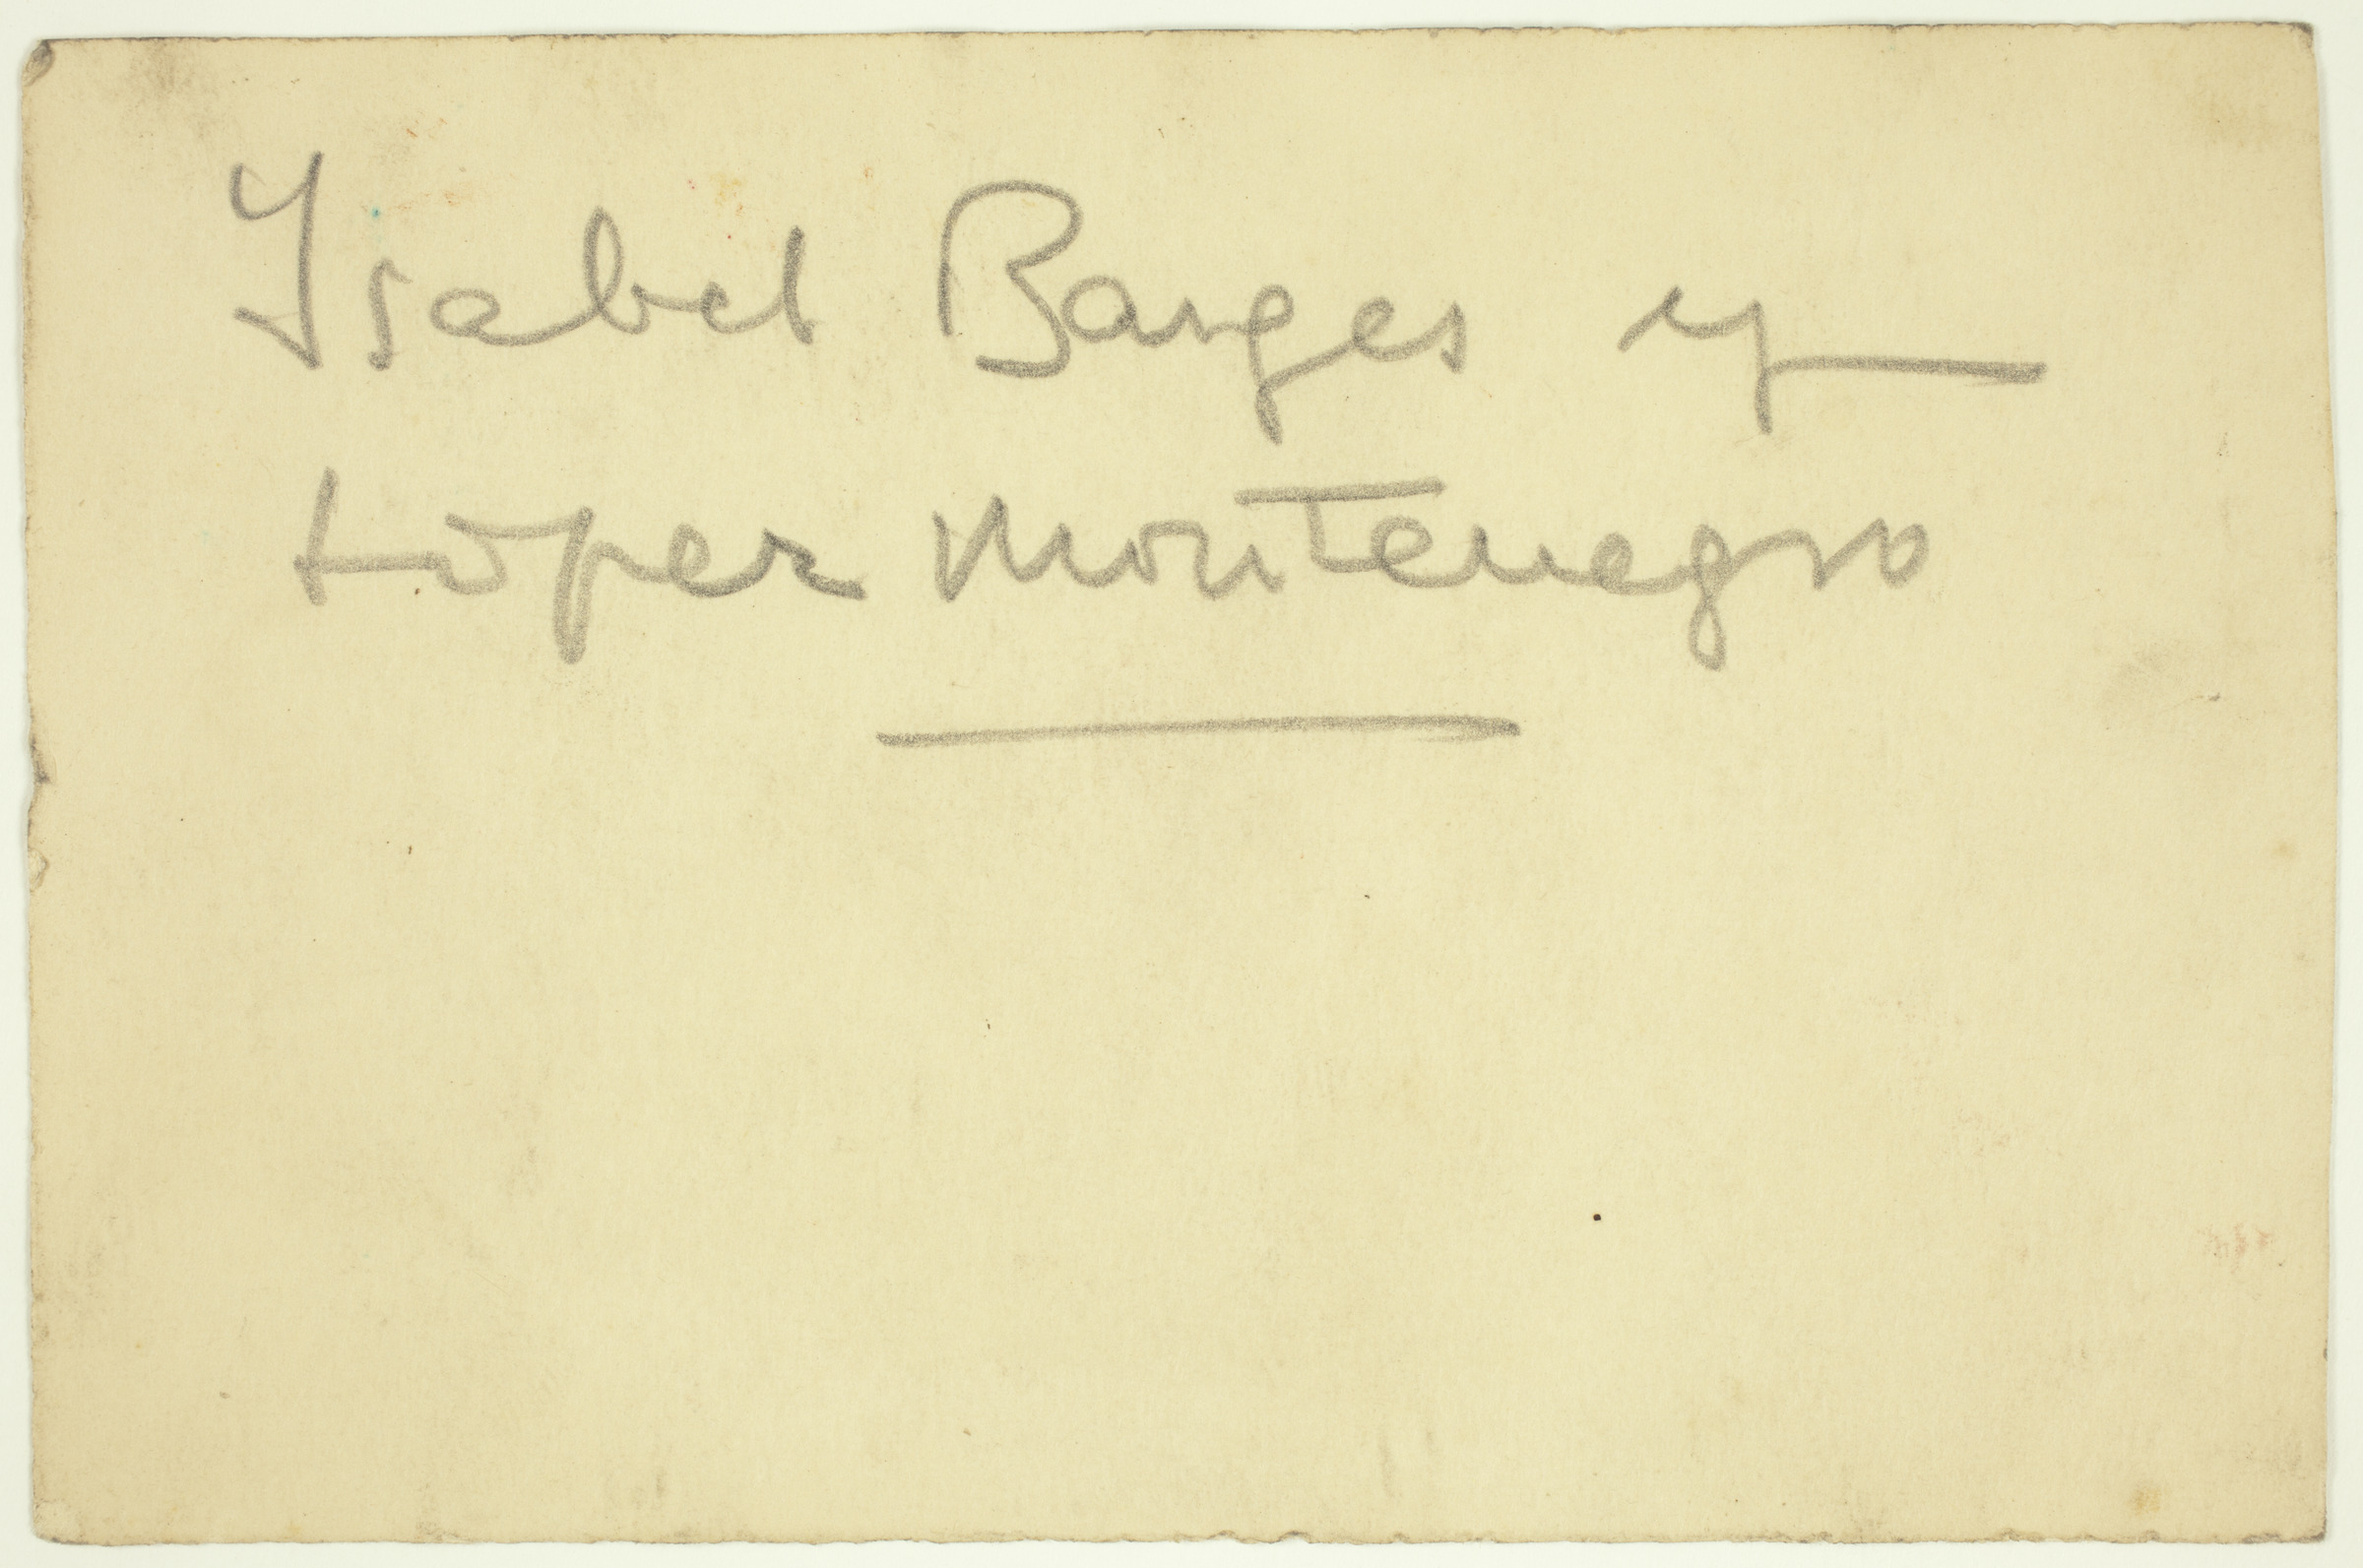 Isabel Barges y
López Montenegro